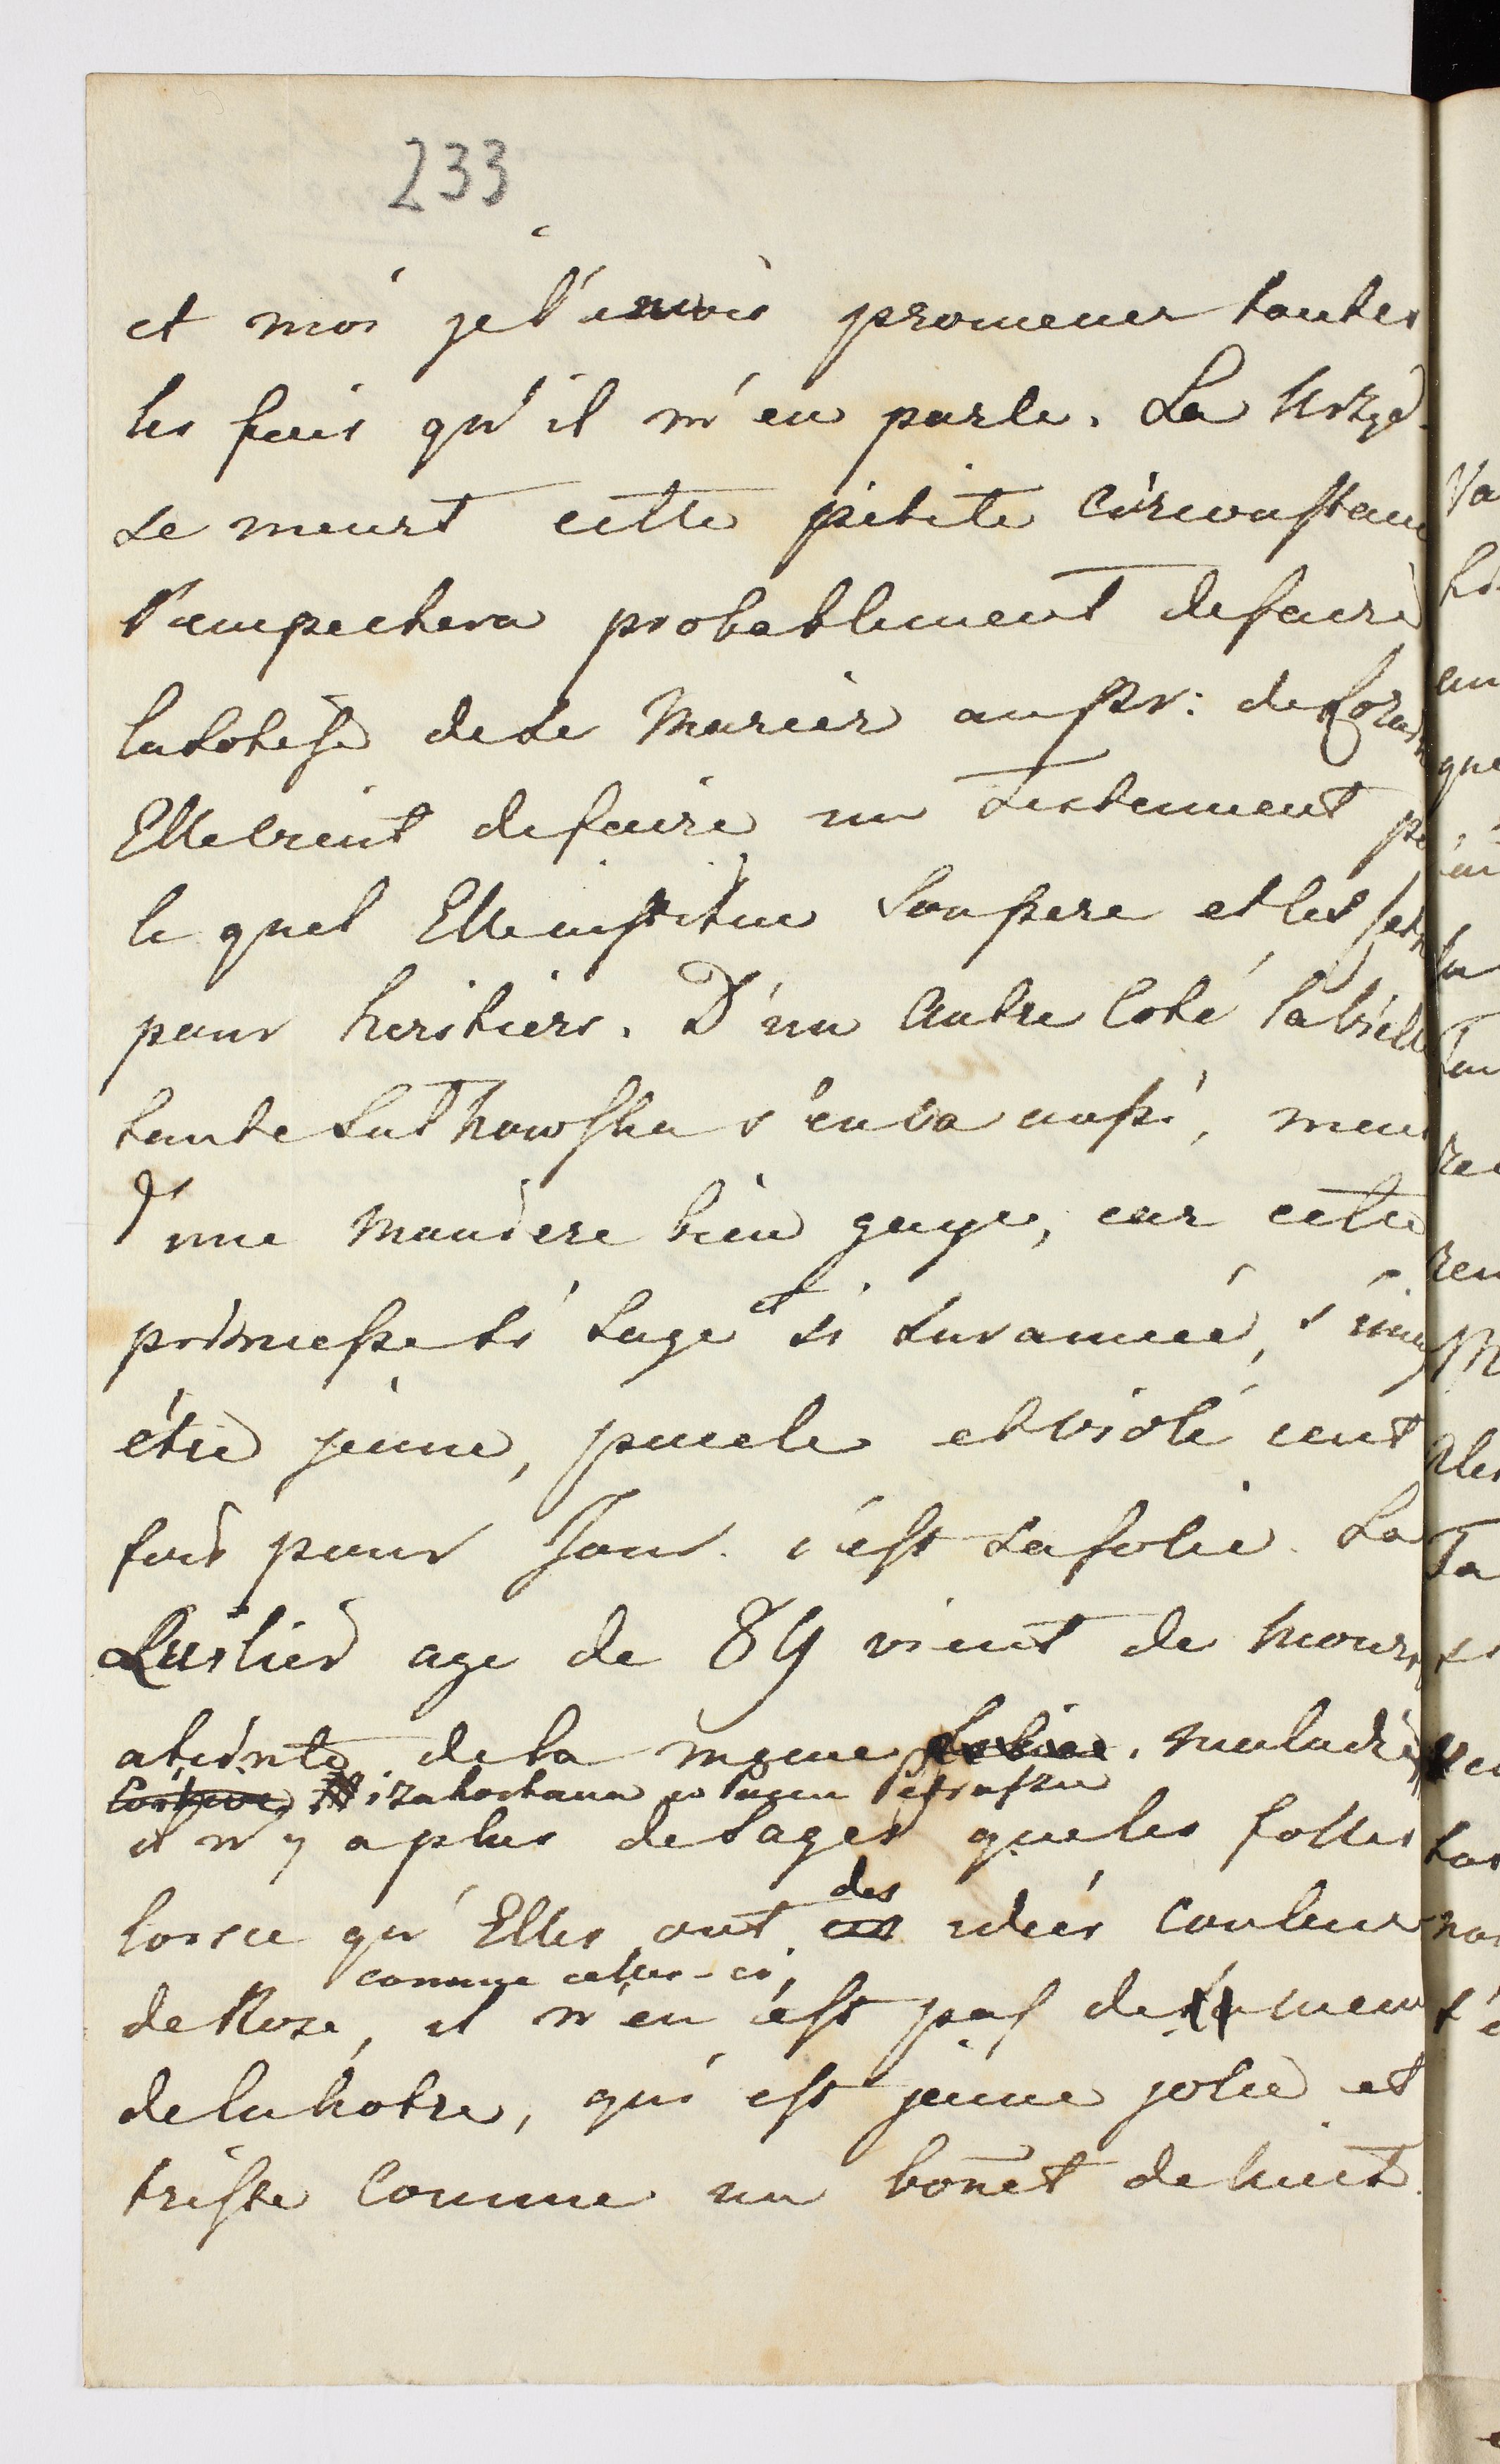 233
et moi je l'envois promener toutes
les fois qu'il m'en parle. La
se meurt cette petite circonstance
l'empechera probablement de faire
la sotise de se marier au pr: de
Elle vient de faire un testement
le quel Elle institue son pere et les
pour heritiers. D'un autre coté la vielle
tante Sulkowska s'en va aussi, mais
d'une maniere bien gaye, car cette
princesse si sage et si surannée,
étre jeune, pucele et violé cent
fois pour Jour. c'est sa folie. La
age de 89 vient de mour
ateinte de la meme maladie
il n'y a plus de sages que les folles
lorsce qu'Elles ont des idées couleur
comme celles-ci,
de Rose, il n'en est pas de meme
de la notre, qui est jeune jolie et
triste comme un bonet de nuit.